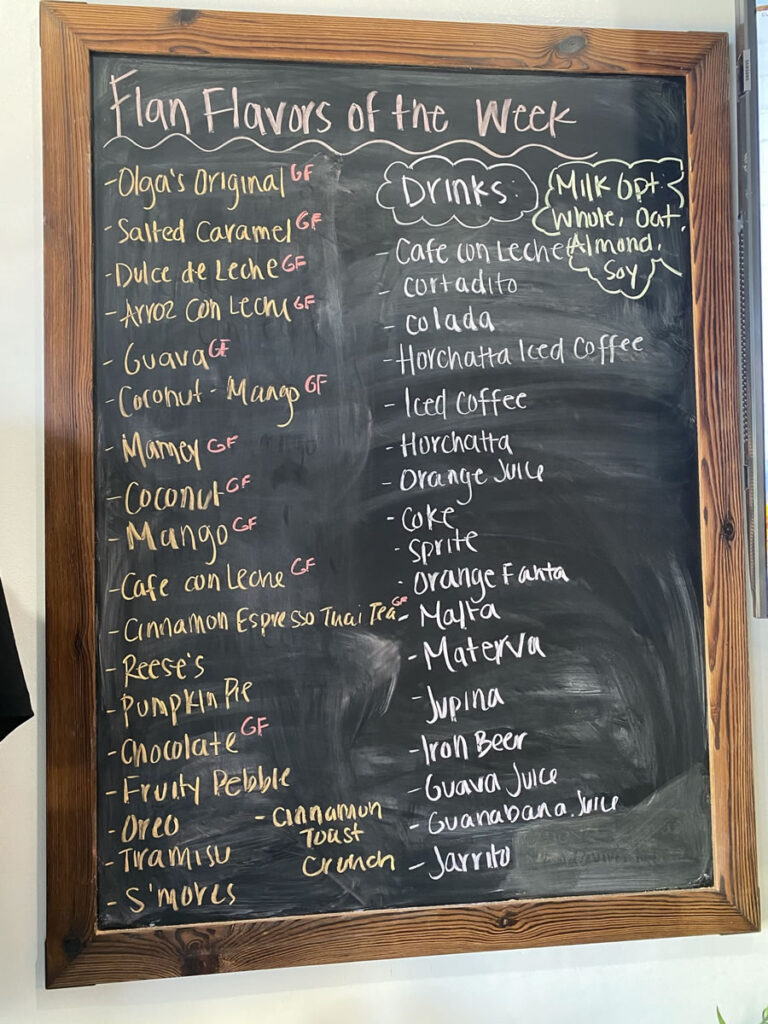 Flan Flavors of the Week
- Olga's Original GF
- Salted Caramel GF
- Dulce de Leche GF
- Arroz con Leche GF
- Guava GF
- Coconut - Mango GF
- Mamey GF
- Coconut GF
- Mango GF
- Cafe con Leche GF
- Cinnamon Espresso Thai Tea GF
- Reese's
- Pumpkin Pie
- Chocolate GF
- Fruity Pebble
- Oreo
- Tiramisu
- S'mores
- Cinnamon
Toast
Crunch
Drinks:
- Cafe con Leche
- cortadito
- colada
- Horchatta Iced Coffee
- Iced Coffee
- Horchatta
- Orange Juice
- Coke
- Sprite
- Orange Fanta
- Malta
- Materva
- Jupina
- Iron Beer
- Guava Juice
- Guanabana Juice
- Jarrito
Milk Opt:
Whole, Oat,
Almond,
Soy